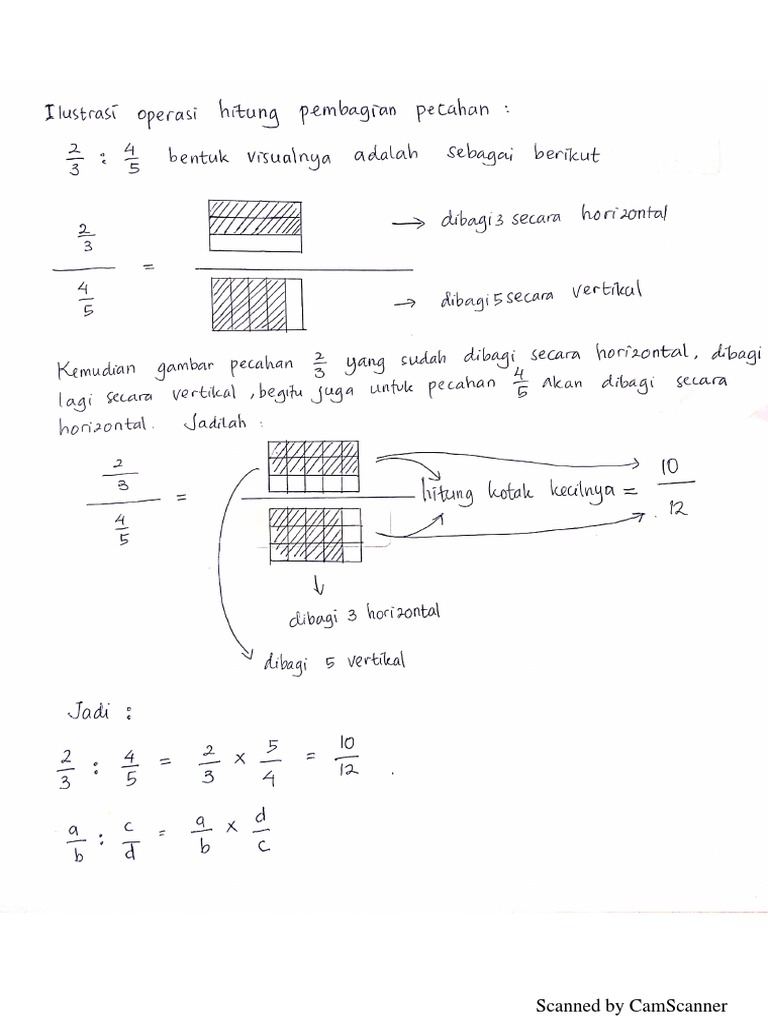 Ilustrasi operasi hitung pembagian pecahan :
2/3 : 4/5 bentuk visualnya adalah sebagai berikut
2/3 → dibagi 3 secara horizontal
=
4/5 → dibagi 5 secara vertikal
Kemudian gambar pecahan 2/3 yang sudah dibagi secara horizontal, dibagi
lagi secara vertikal, begitu juga untuk pecahan 4/5 akan dibagi secara
horizontal. Jadilah :
2/3
4/5 = hitung kotak kecilnya = 10/12
dibagi 3 horizontal
dibagi 5 vertikal
Jadi :
2/3 : 4/5 = 2/3 x 5/4 = 10/12 .
a/b : c/d = a/b x d/c
Scanned by CamScanner